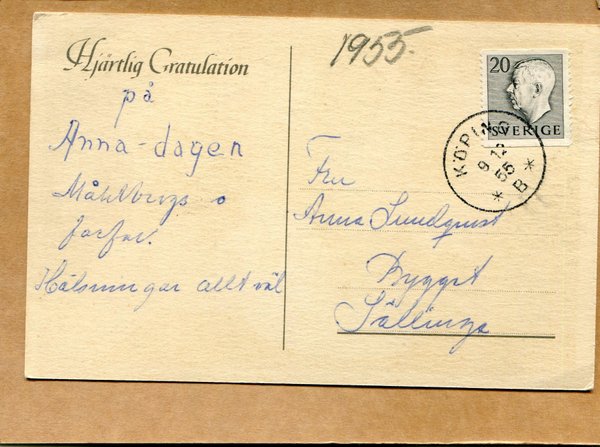 Hjärtlig Gratulation
på
Anna-dagen
farfar.
Hälsningar allt väl
1955.
20
SVERIGE
KÖPING
9 12
55
* B *
Fru
Anna Sundqvist
Bygget